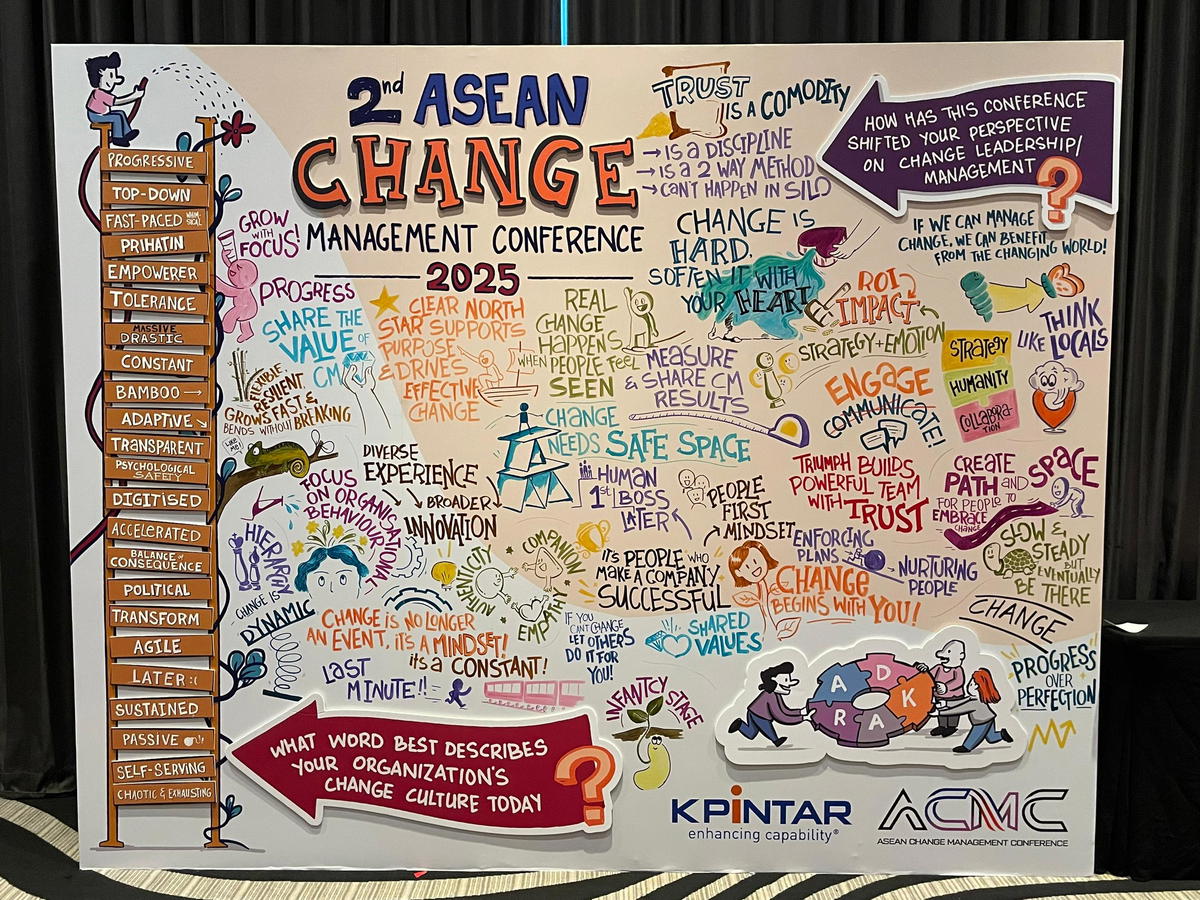 2nd ASEAN
CHANGE
MANAGEMENT CONFERENCE
2025
PROGRESSIVE
TOP-DOWN
FAST-PACED WHIMSICAL
PRIHATIN
EMPOWERER
TOLERANCE
MASSIVE
DRASTIC
CONSTANT
BAMBOO →
ADAPTIVE
TRANSPARENT
PSYCHOLOGICAL
SAFETY
DIGITISED
ACCELERATED
BALANCE OF
CONSEQUENCE
POLITICAL
TRANSFORM
AGILE
LATER :(
SUSTAINED
PASSIVE
SELF-SERVING
CHAOTIC & EXHAUSTING
TRUST
IS A COMODITY
→ IS a DISCIPLINE
→ IS a 2 WAY METHOD
→ CAN'T HAPPEN IN SILO
HOW HAS THIS CONFERENCE
SHIFTED YOUR PERSPECTIVE
ON CHANGE LEADERSHIP/
MANAGEMENT?
GROW
WITH
FOCUS!
PROGRESS
SHARE THE
VALUE OF
CM
CLEAR NORTH
STAR SUPPORTS
PURPOSE
& DRIVES
EFFECTIVE
CHANGE
REAL
CHANGE
HAPPENS
WHEN PEOPLE FEEL
SEEN
CHANGE IS
HARD.
SOFTEN IT WITH
YOUR HEART
ROI
IMPACT
IF WE CAN MANAGE
CHANGE, WE CAN BENEFIT
FROM THE CHANGING WORLD!
THINK
LIKE LOCALS
STRATEGY + EMOTION
STRATEGY
HUMANITY
COLLABORA-
TION
MEASURE
& SHARE CM
RESULTS
ENGAGE
COMMUNICATE!
FLEXIBLE
RESILIENT
GROWS FAST &
BENDS WITHOUT BREAKING
LIKE
ME!
CHANGE
NEEDS SAFE SPACE
DIVERSE
EXPERIENCE
BROADER
INNOVATION
FOCUS
ON ORGANISATIONAL
BEHAVIOUR
HUMAN
1st BOSS
LATER
PEOPLE
FIRST
MINDSET
TRIUMPH BUILDS
POWERFUL TEAM
WITH TRUST
CREATE
PATH AND SPACE
FOR PEOPLE TO
EMBRACE
CHANGE
HIERARCHY
CHANGE IS
DYNAMIC
AUTHENTICITY
COMPANION
EMPATHY
IT'S PEOPLE WHO
MAKE A COMPANY
SUCCESSFUL
ENFORCING
PLANS
NURTURING
PEOPLE
SLOW &
STEADY
BUT
EVENTUALLY
BE THERE
CHANGE
BEGINS WITH YOU!
CHANGE
CHANGE IS NO LONGER
AN EVENT, IT'S A MINDSET!
IT'S A CONSTANT!
LAST
MINUTE!!
IF YOU
CAN'T CHANGE
LET OTHERS
DO IT FOR
YOU!
SHARED
VALUES
INFANTCY STAGE
PROGRESS
OVER
PERFECTION
A D K A R
WHAT WORD BEST DESCRIBES
YOUR ORGANIZATION'S
CHANGE CULTURE TODAY?
KPINTAR
enhancing capability®
ACMC
ASEAN CHANGE MANAGEMENT CONFERENCE